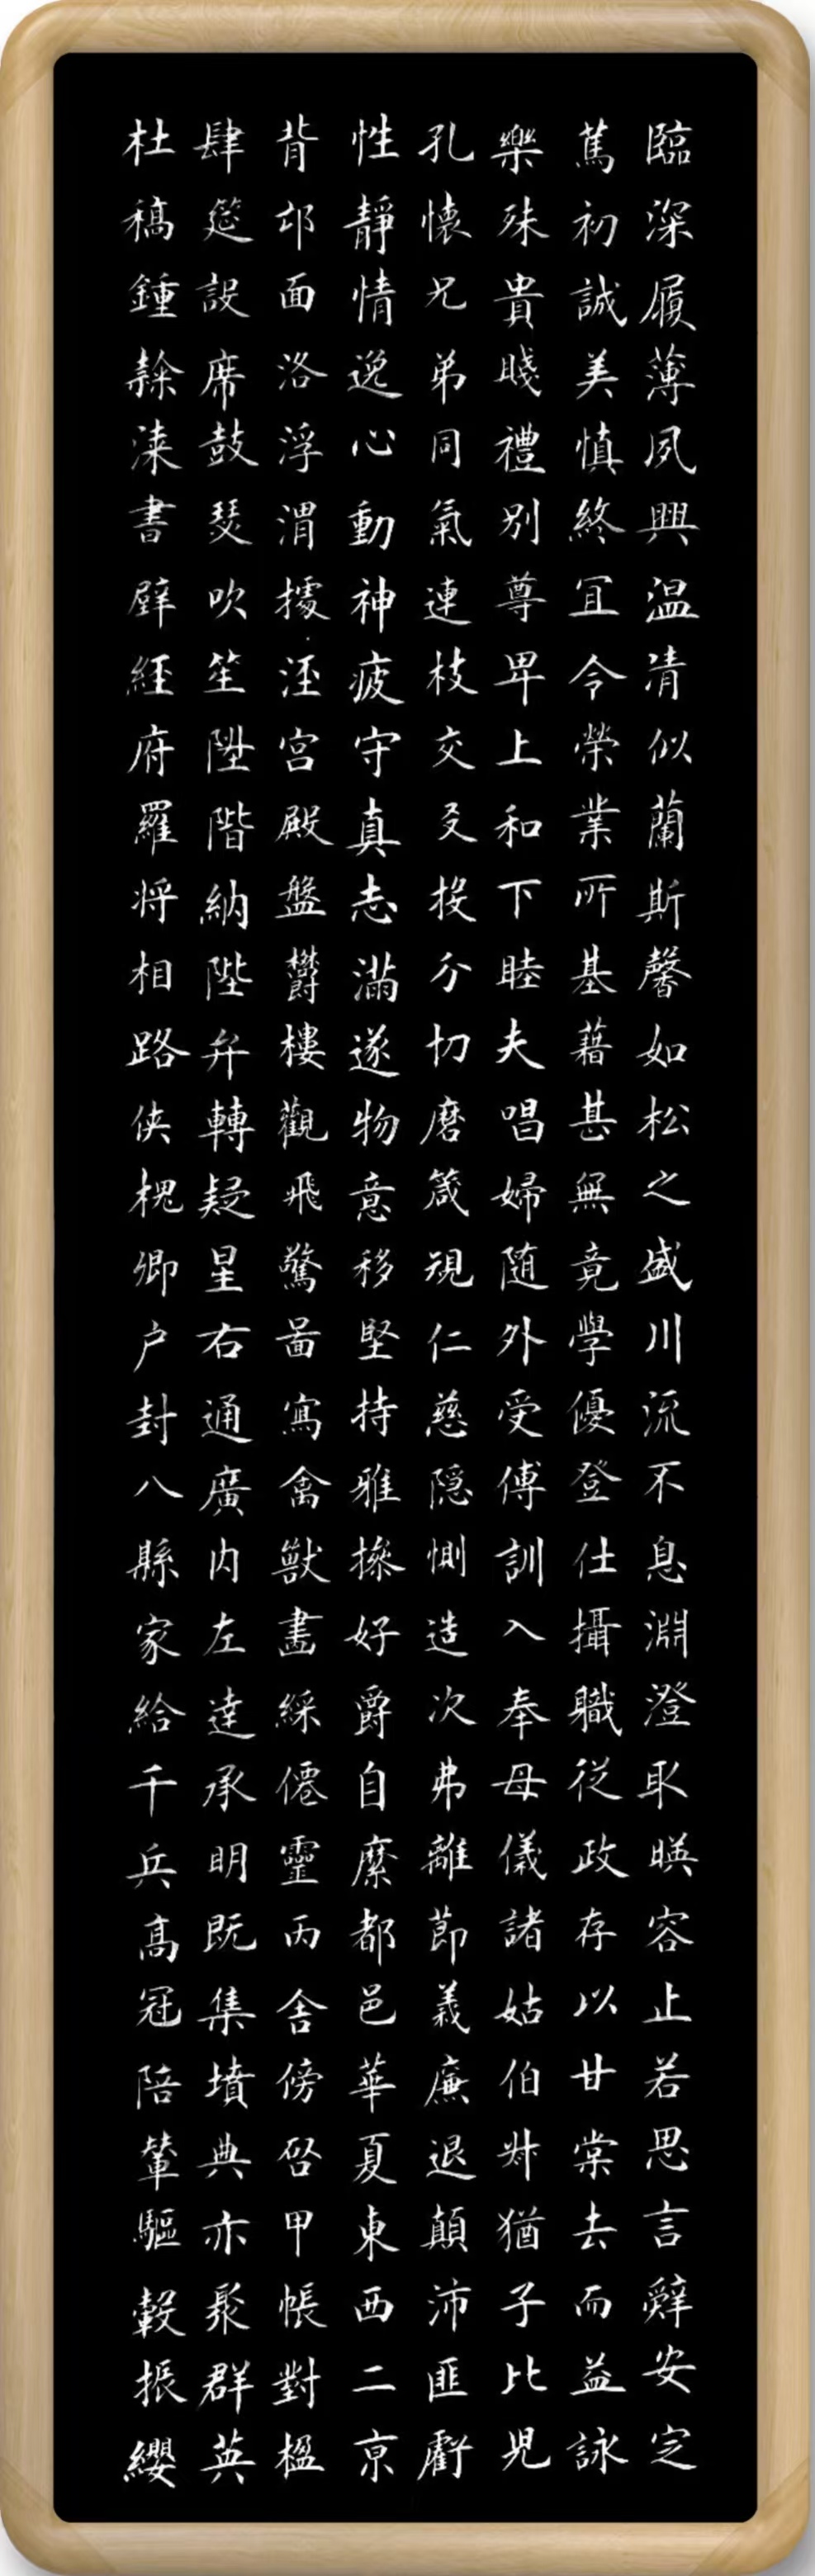 臨深履薄夙興温凊似蘭斯馨如松之盛川流不息淵澄取暎容止若思言辭安定
篤初誠美慎終宜令榮業所基藉甚無竟學優登仕攝職從政存以甘棠去而益詠
樂殊貴賤禮別尊卑上和下睦夫唱婦随外受傅訓入奉母儀諸姑伯叔猶子比兒
孔懷兄弟同氣連枝交友投分切磨箴規仁慈隱惻造次弗離節義廉退顛沛匪虧
性靜情逸心動神疲守真志滿逐物意移堅持雅操好爵自縻都邑華夏東西二京
背邙面洛浮渭據涇宮殿盤鬱樓觀飛驚圖寫禽獸畫綵僊靈丙舍傍啓甲帳對楹
肆筵設席鼓瑟吹笙陞階納陛弁轉疑星右通廣内左達承明既集墳典亦聚群英
杜稿鍾隸漆書壁經府羅將相路俠槐卿户封八縣家給千兵高冠陪輦驅轂振纓